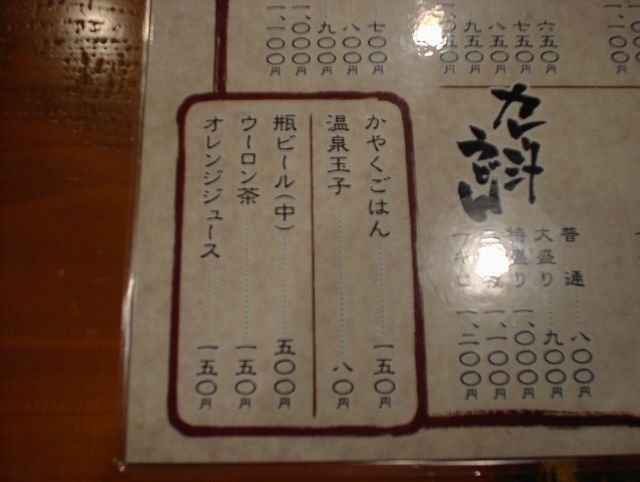 六五〇円
七五〇円
八五〇円
九五〇円
一、〇五〇円
七〇〇円
八〇〇円
九〇〇円
一、〇〇〇円
一、一〇〇円
普通 八〇〇円
大盛り 九〇〇円
特盛り 一、〇〇〇円
一、一〇〇円
一、二〇〇円
かやくごはん 一五〇円
温泉玉子 八〇円
瓶ビール(中) 五〇〇円
ウーロン茶 一五〇円
オレンジジュース 一五〇円